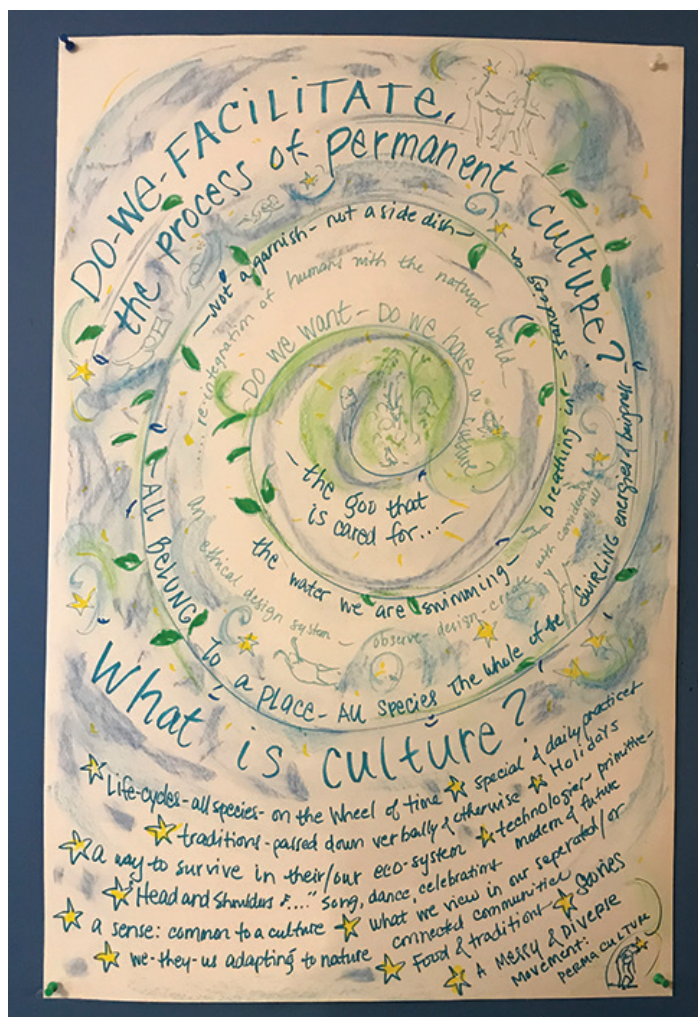 DO-WE-FACILITATE,
the process of permanent culture?
- Not a garnish - not a side dish -
.... re-integration of humans with the natural world -
DO WE WANT - DO WE have a culture?
- the goo that
is cared for....-
the water we are swimming -
breathing in - standing on
an ethical design system - observe - design - create with
- ALL BELONG To a PLACE - ALL SPECIES The whole of the SWIRLING energies
What is culture?
Life-cycles - all species - on the Wheel of time
special & daily practices
traditions - passed down verbally & otherwise
Holidays
a way to survive in their/our eco-system
technologies - primitive -
modern & future
"Head and Shoulders ...." song, dance, celebrations
a sense: common to a culture
what we view in our seperated/or
connected communities
we-they-us adapting to nature
Food & traditions
Stories
A Messy & Diverse
Movement:
PERMACULTURE